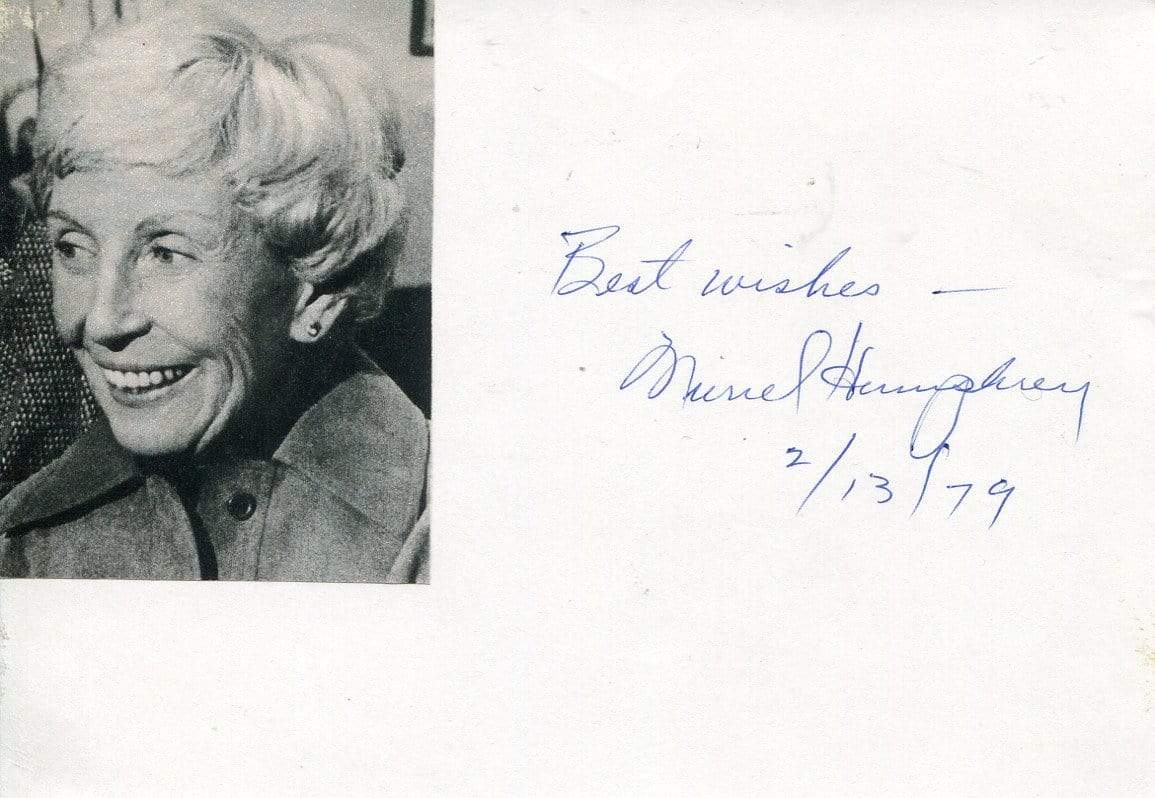 Best wishes —
Muriel Humphrey
2/13/79